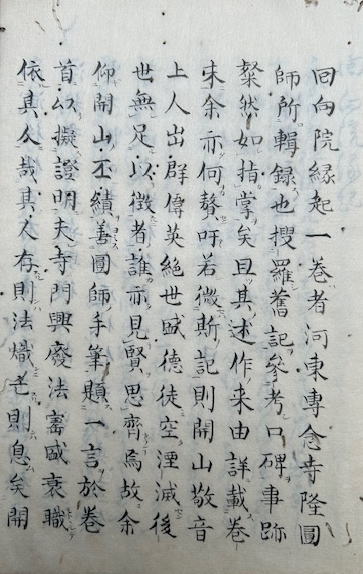 回向院縁起一巻者河東専念寺隆圓
師所輯録也捜羅舊記参考口碑事跡
粲然如指掌矣且其述作来由詳載巻
末余亦何贅吁若微斯記則開山敬音
上人出群偉英絶世盛德徒空湮滅後
世無足以徴者誰亦見賢思齊焉故余
仰開山丕績善圓師手筆題一言於巻
首以擬證明夫寺門興廢法畜盛衰職
依其人哉其人存則法熾亡則息矣開